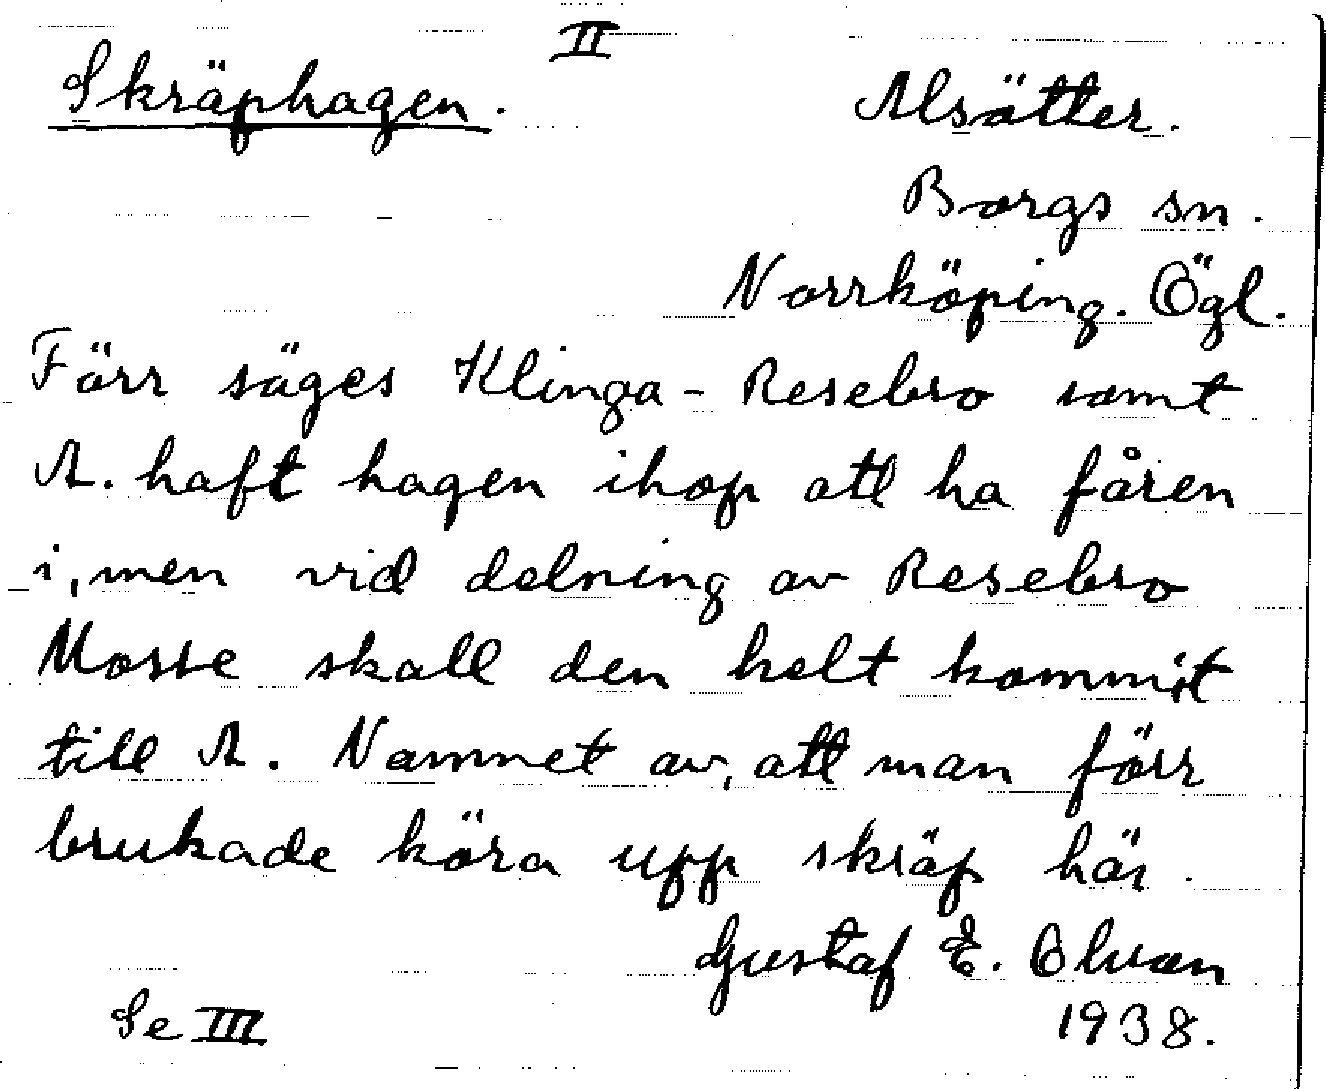 II
Skräphagen.
Alsätter.
Borgs sn.
Norrköping. Ögl.
Förr säges Klinga - Resebro samt
A. haft hagen ihop att ha fåren
i, men vid delning av Resebro
Mosse skall den helt kommit
till A. Namnet av, att man förr
brukade köra upp skräp här.
Gustaf E.
Se III
1938.